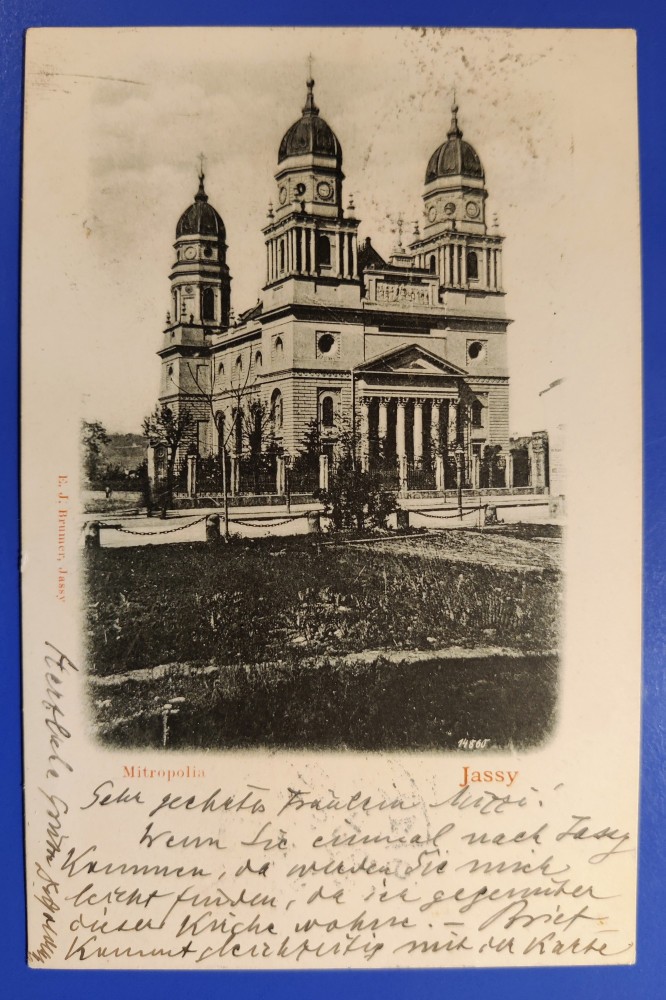 E. J. Brumer, Jassy
14865
Mitropolia
Jassy
Sehr geehrtes Fräulein Mizzi!
Wenn Sie einmal nach Jassy
Kommen, da werden Sie mich
leicht finden, da ich gegenüber
dieser Kirche wohne. — Brief
Kommt gleichzeitig mit der Karte
Herzliche